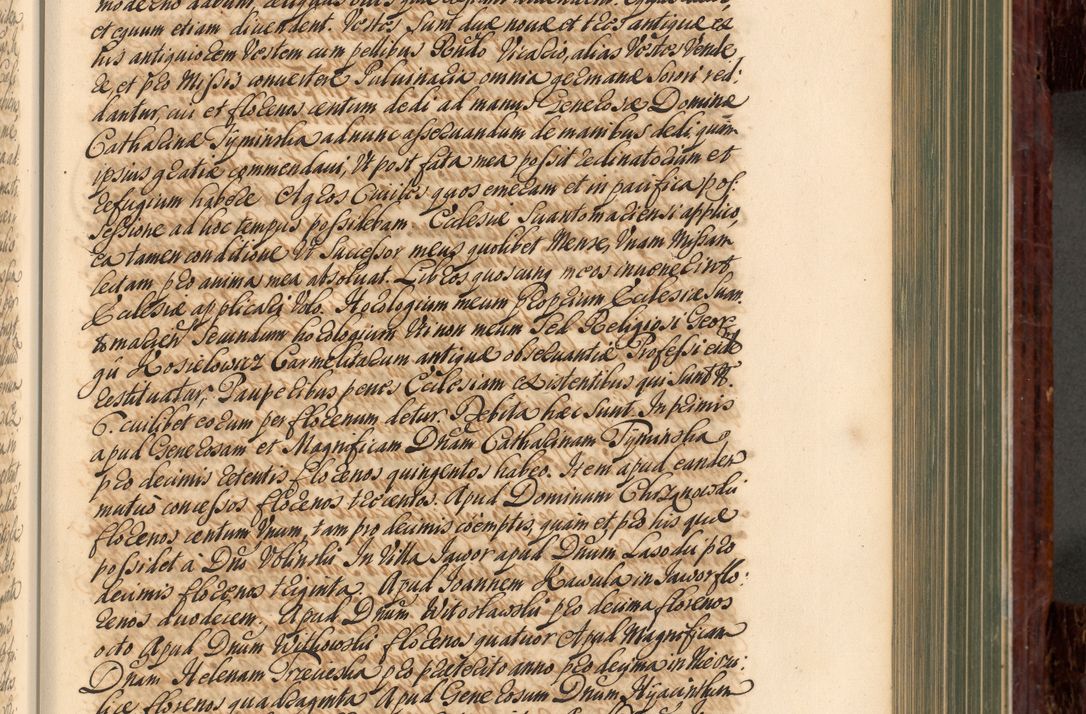 et equum etiam divendent. Vestes Sunt duæ novæ et tres antiquæ ex
his antiquiorem Vestem cum pellibus Rendo Vicario, alias Vestes Vende
re et pro Missis convertere Pulvinaria omnia germanæ Sorori red:
dantur, cui et florenos centum dedi ad manus Generosæ Dominæ
Catharinæ Tyminska adnunc asservandum de manibus dedi quam
ipsius gratiæ commendavi, Ut post fata mea possit reclinatorium et
refugium habere. Agros Civiles quos emeram et in pacifica pos:
sessione ad hoc tempus possidebam. Ecclesiæ Suantomariensi applico,
ea tamen conditione Ut Successor meus quolibet Mense, Unam Missam
lectam pro anima mea absolvat. Libros quoscunq meos invenerint
Ecclesiæ applicari volo. Horologium meum proprium Ecclesiæ Suan
tomarien Secundum horologium Uti non meum Sed Religiosi Geor
gii Kosielowicz Carmelitarum antiquæ observantiæ Professi eid
restituatur, Pauperibus penes Ecclesiam existentibus qui Sunt N.
6. cuilibet eorum per florenum detur. Debita hæc Sunt. In primis
apud Generosam et Magnificam Dnam Catharinam Tyminska
pro decimis retentis florenos quingentos habeo. Item apud eandem
mutuo concessos florenos trecentos. Apud Dominum Chrzanowski
florenos centum Unum, tam pro decimis coemptis, quam et pro his quæ
possidet à Dno Volinski In Villa Jawor apud Dnum Lasodu pro
decimis florenos triginta. Apud Joannem Kawula in Jawor flo:
renos duodecem. Apud Dnum Witoslawski pro decima florenos
octo Apud Dnum Withowski florenos quatuor Apud Magnificam
Dnam Helenam Trzeveska pro præterito anno pro decima in Mieru:
lice florenos quadraginta Apud Generosum Dnum Hyacinthum